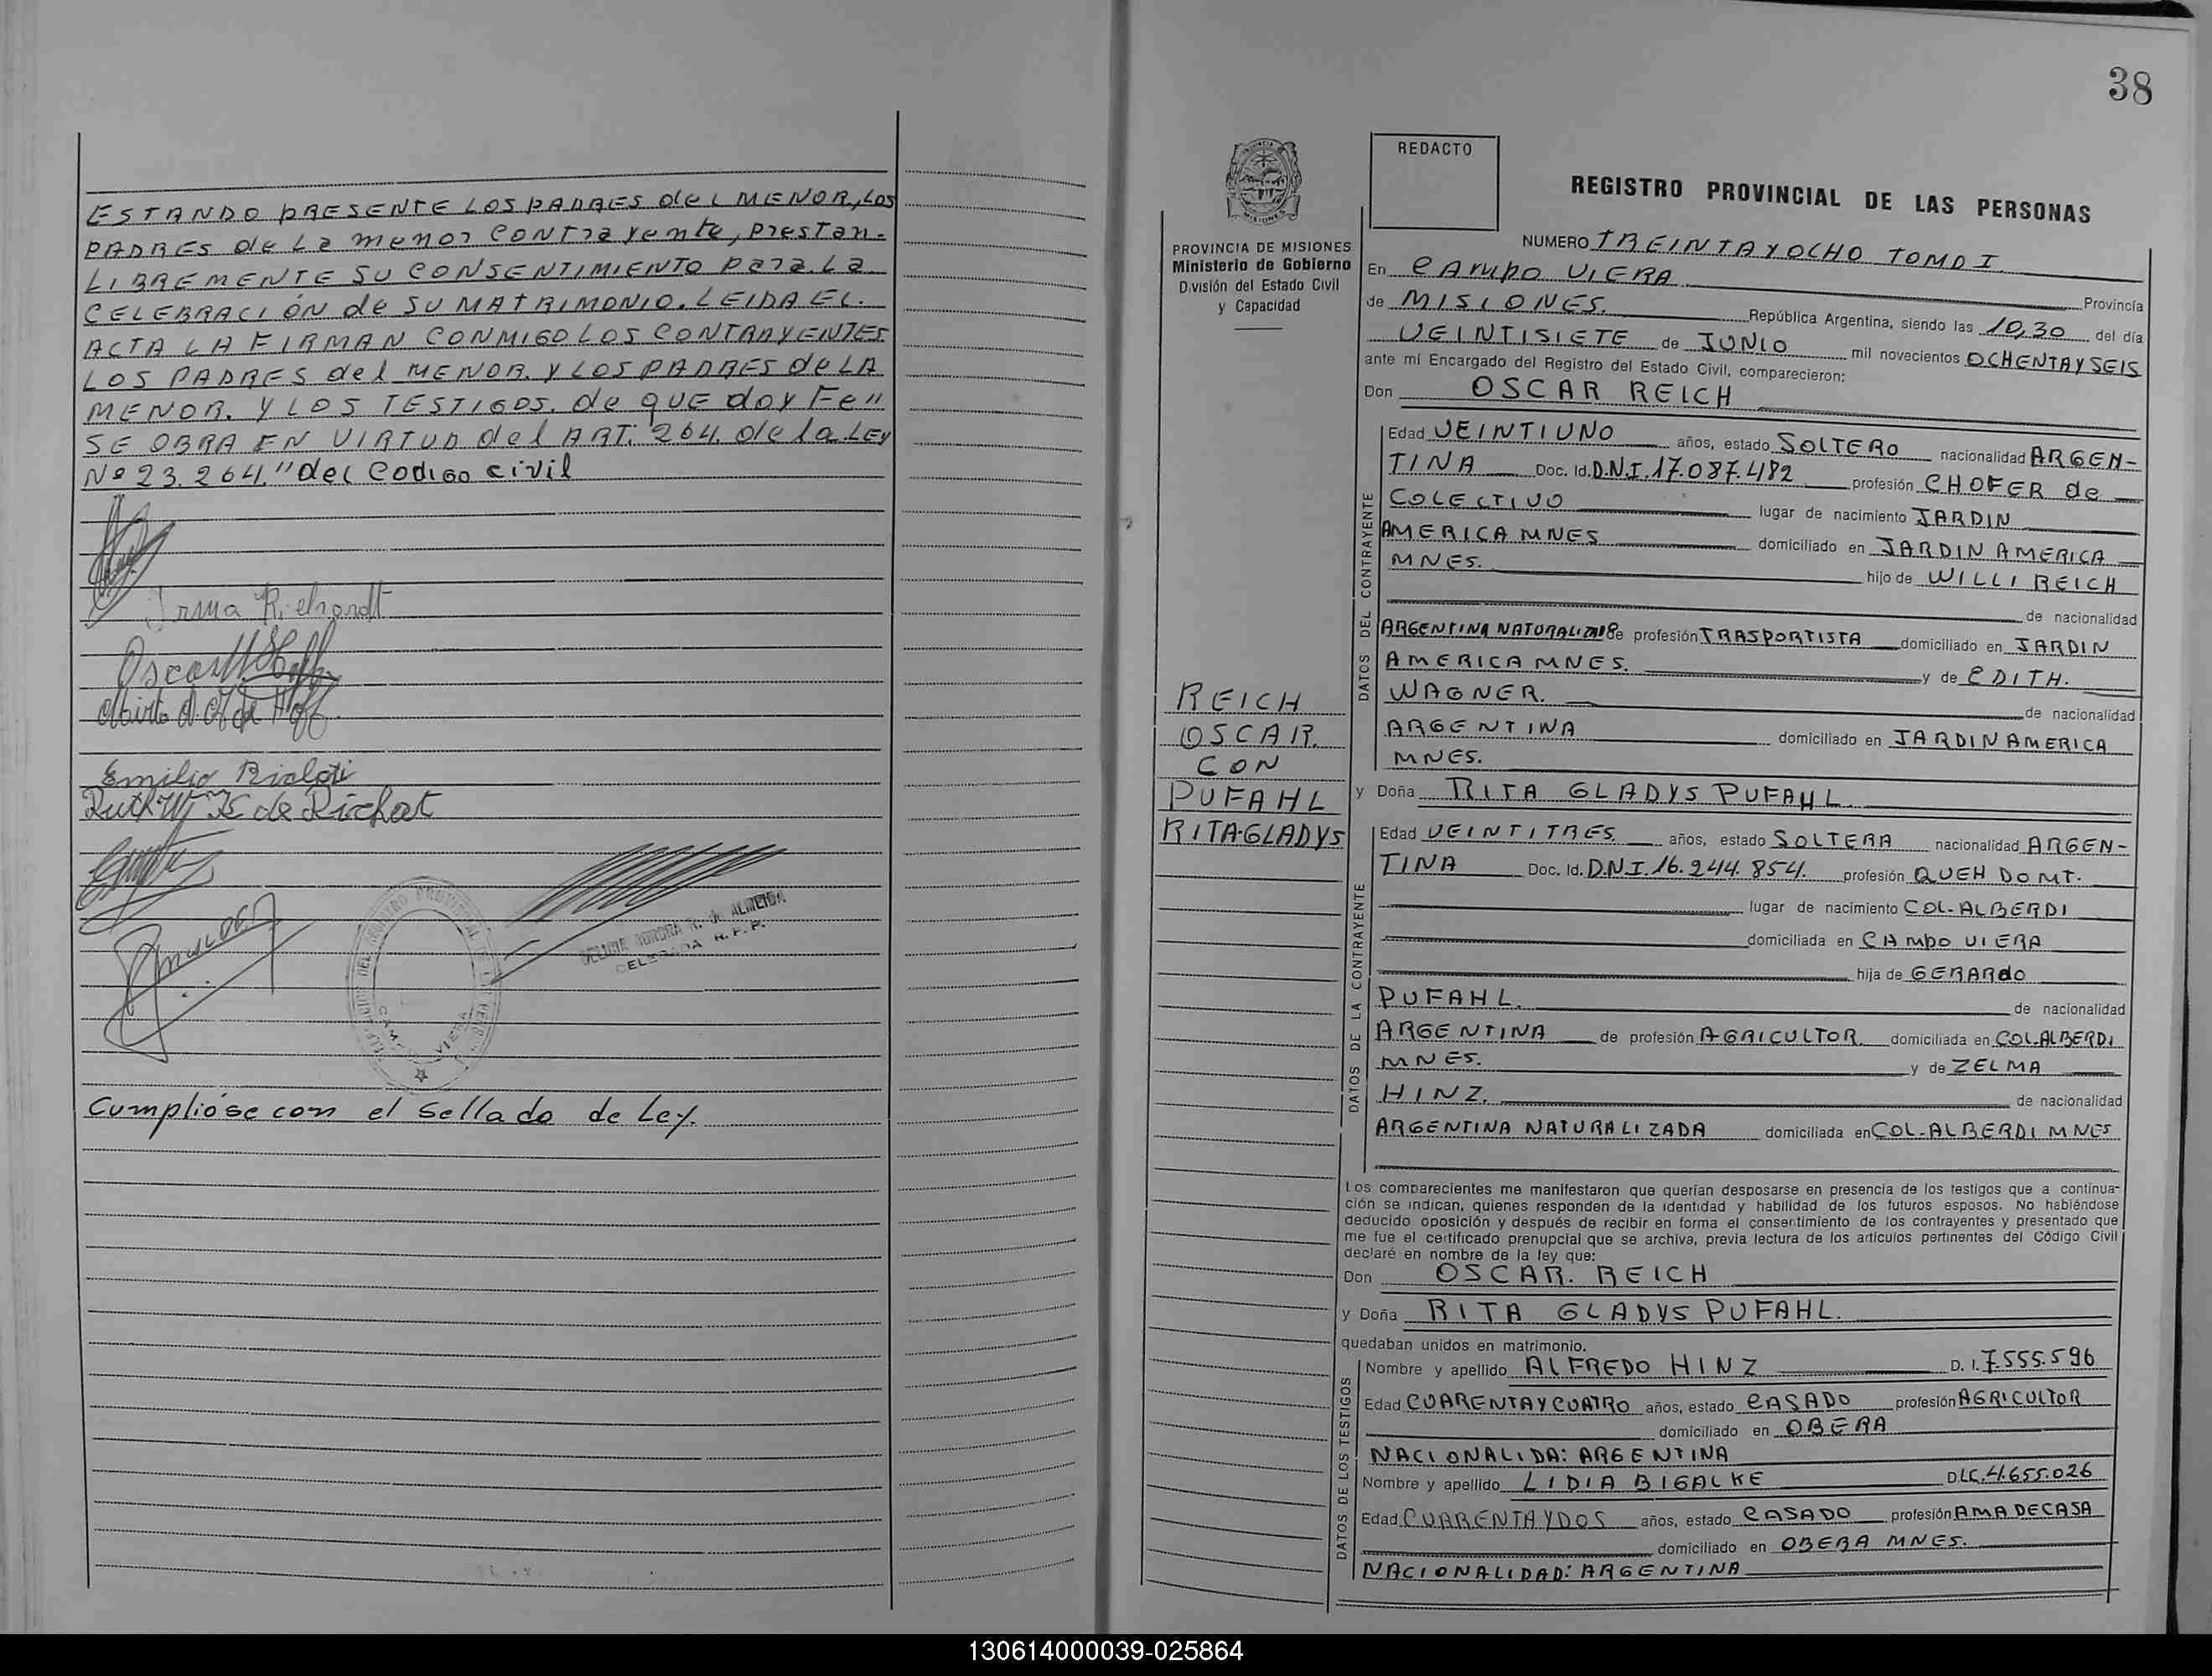 ESTANDO PRESENTE LOS PADRES del MENOR, LOS
PADRES de La menor CONTrayente, Prestan-
LIBREMENTE SU CONSENTIMIENTO Para La
CELEBRACIÓN de SU MATRIMONIO. LEIDA EL.
ACTA LA FIRMAN CONMIGO LOS CONTRAYENTES.
LOS PADRES del MENOR. Y LOS PADRES de LA
MENOR. Y LOS TESTIGOS. de QUE doy Fe"
SE OBRA EN VIRTUD del ART. 264. de la LEY
Nº 23.264." del Codigo civil
Irma Richardt
Oscar
de Hoff
Emilio
Ruth W de Richart
CAMPO VIERA
DELEGADA R. P. P.
Cumplióse con el Sellado de Ley.
38
REDACTO
REGISTRO PROVINCIAL DE LAS PERSONAS
PROVINCIA DE MISIONES
Ministerio de Gobierno
División del Estado Civil
y Capacidad
NUMERO TREINTA Y OCHO TOMO I
En CAMPO VIERA Provincia
de MISIONES. República Argentina, siendo las 10,30 del día
VEINTISIETE de JUNIO mil novecientos OCHENTA Y SEIS
ante mí Encargado del Registro del Estado Civil, comparecieron:
Don OSCAR REICH
DATOS DEL CONTRAYENTE
Edad VEINTIUNO años, estado SOLTERO nacionalidad ARGEN-
TINA Doc. Id. D.N.I. 17.087.482 profesión CHOFER de
COLECTIVO lugar de nacimiento JARDIN
AMERICA MNES domiciliado en JARDIN AMERICA
MNES. hijo de WILLI REICH
de nacionalidad
ARGENTINA de profesión TRASPORTISTA domiciliado en JARDIN
AMERICA MNES. y de EDITH.
WAGNER. de nacionalidad
ARGENTINA domiciliado en JARDIN AMERICA
MNES.
REICH
OSCAR.
CON
PUFAHL
RITA-GLADYS
y Doña RITA GLADYS PUFAHL.
DATOS DE LA CONTRAYENTE
Edad VEINTITRES años, estado SOLTERA nacionalidad ARGEN-
TINA Doc. Id. D.N.I. 16.244.854. profesión QUEH DOMT.
lugar de nacimiento COL-ALBERDI
domiciliada en CAMPO VIERA
hija de GERARdo
PUFAHL. de nacionalidad
ARGENTINA de profesión AGRICULTOR domiciliada en COL.ALBERDI
MNES. y de ZELMA
HINZ. de nacionalidad
ARGENTINA NATURALIZADA domiciliada en COL-ALBERDI MNES
Los comparecientes me manifestaron que querían desposarse en presencia de los testigos que a continua-
ción se indican, quienes responden de la identidad y habilidad de los futuros esposos. No habiéndose
deducido oposición y después de recibir en forma el consentimiento de los contrayentes y presentado que
me fue el certificado prenupcial que se archiva, previa lectura de los artículos pertinentes del Código Civil
declaré en nombre de la ley que:
Don OSCAR. REICH
y Doña RITA GLADYS PUFAHL.
quedaban unidos en matrimonio.
DATOS DE LOS TESTIGOS
Nombre y apellido ALFREDO HINZ D. I. 7.555.596
Edad CUARENTA Y CUATRO años, estado CASADO profesión AGRICULTOR
domiciliado en OBERA
NACIONALIDA: ARGENTINA
Nombre y apellido LIDIA BIGALKE D LC. 4.655.026
Edad CUARENTA Y DOS años, estado CASADO profesión AMA DE CASA
domiciliado en OBERA MNES.
NACIONALIDAD: ARGENTINA
130614000039-025864